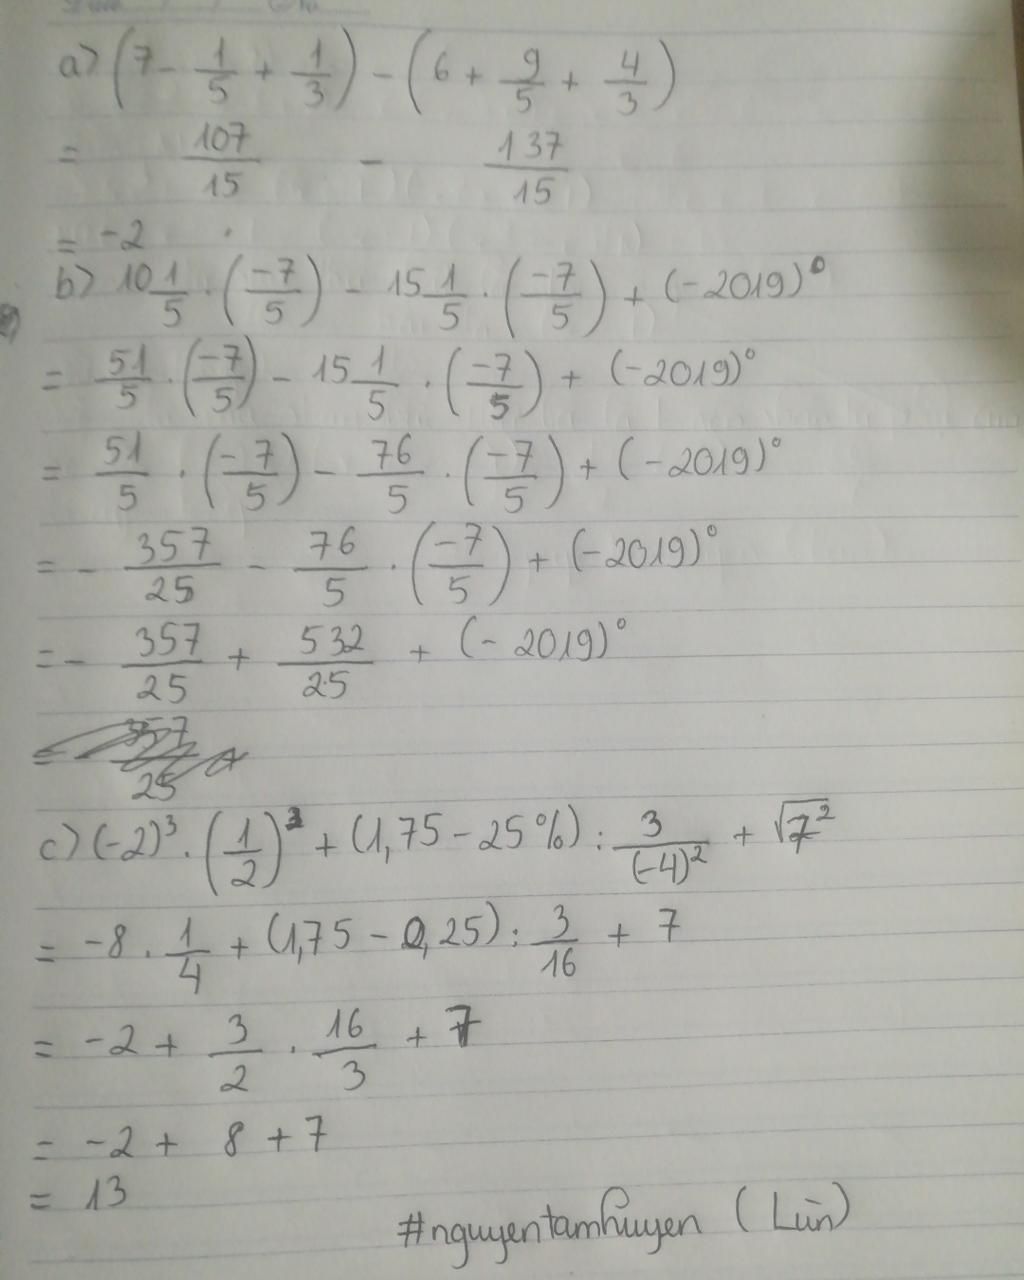 a) (7 - 1/5 + 1/3) - (6 + 9/5 + 4/3)
= 107/15 - 137/15
= -2
b) 10 1/5 . (-7/5) - 15 1/5 . (-7/5) + (-2019)⁰
= 51/5 . (-7/5) - 15 1/5 . (-7/5) + (-2019)⁰
= 51/5 . (-7/5) - 76/5 . (-7/5) + (-2019)⁰
= - 357/25 - 76/5 . (-7/5) + (-2019)⁰
= - 357/25 + 532/25 + (-2019)⁰
c) (-2)³ . (1/2)² + (1,75 - 25%) : 3/(-4)² + √7²
= -8 . 1/4 + (1,75 - 0,25) : 3/16 + 7
= -2 + 3/2 . 16/3 + 7
= -2 + 8 + 7
= 13
#nguyentamhuyen (Lùn)